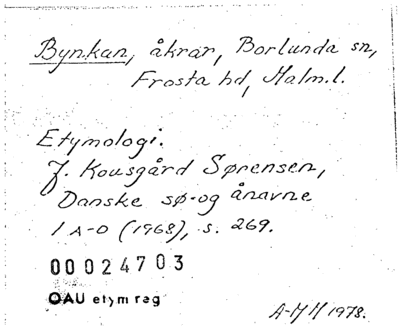 Bynkan, åkrar, Borlunda sn,
Frosta hd, Malm.l.
Etymologi.
J. Kousgård Sørensen,
Danske sø- og ånavne
1 A-D (1968), s. 269.
00024703
OAU etym reg
A-MH 1978.